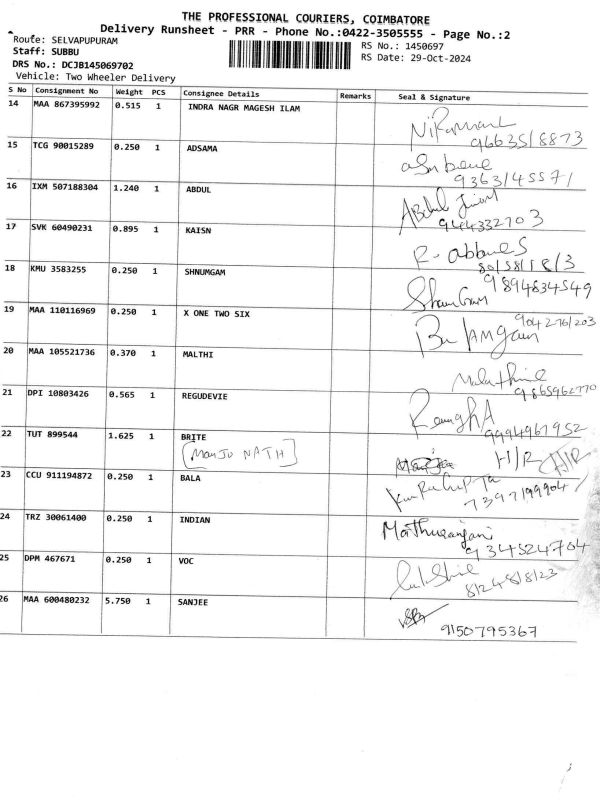 THE PROFESSIONAL COURIERS, COIMBATORE
Delivery Runsheet - PRR - Phone No.:0422-3505555 - Page No.:2
Route: SELVAPUPURAM
RS No.: 1450697
Staff: SUBBU
RS Date: 29-Oct-2024
DRS No.: DCJB145069702
Vehicle: Two Wheeler Delivery
S No Consignment No Weight PCS Consignee Details Remarks Seal & Signature
14 MAA 867395992 0.515 1 INDRA NAGR MAGESH ILAM
9663518873
15 TCG 90015289 0.250 1 ADSAMA
9363145571
16 IXM 507188304 1.240 1 ABDUL
Abdul
944332703
17 SVK 60490231 0.895 1 KAISN
R-
18 KMU 3583255 0.250 1 SHNUMGAM
9894834549
19 MAA 110116969 0.250 1 X ONE TWO SIX
904276/203
20 MAA 105521736 0.370 1 MALTHI
21 DPI 10803426 0.565 1 REGUDEVIE
9994961952
22 TUT 899544 1.625 1 BRITE
ManJU NATH
H/R H/R
23 CCU 911194872 0.250 1 BALA
7397199904
24 TRZ 30061400 0.250 1 INDIAN
934524704
25 DPM 467671 0.250 1 VOC
8124818123
26 MAA 600480232 5.750 1 SANJEE
9150795367